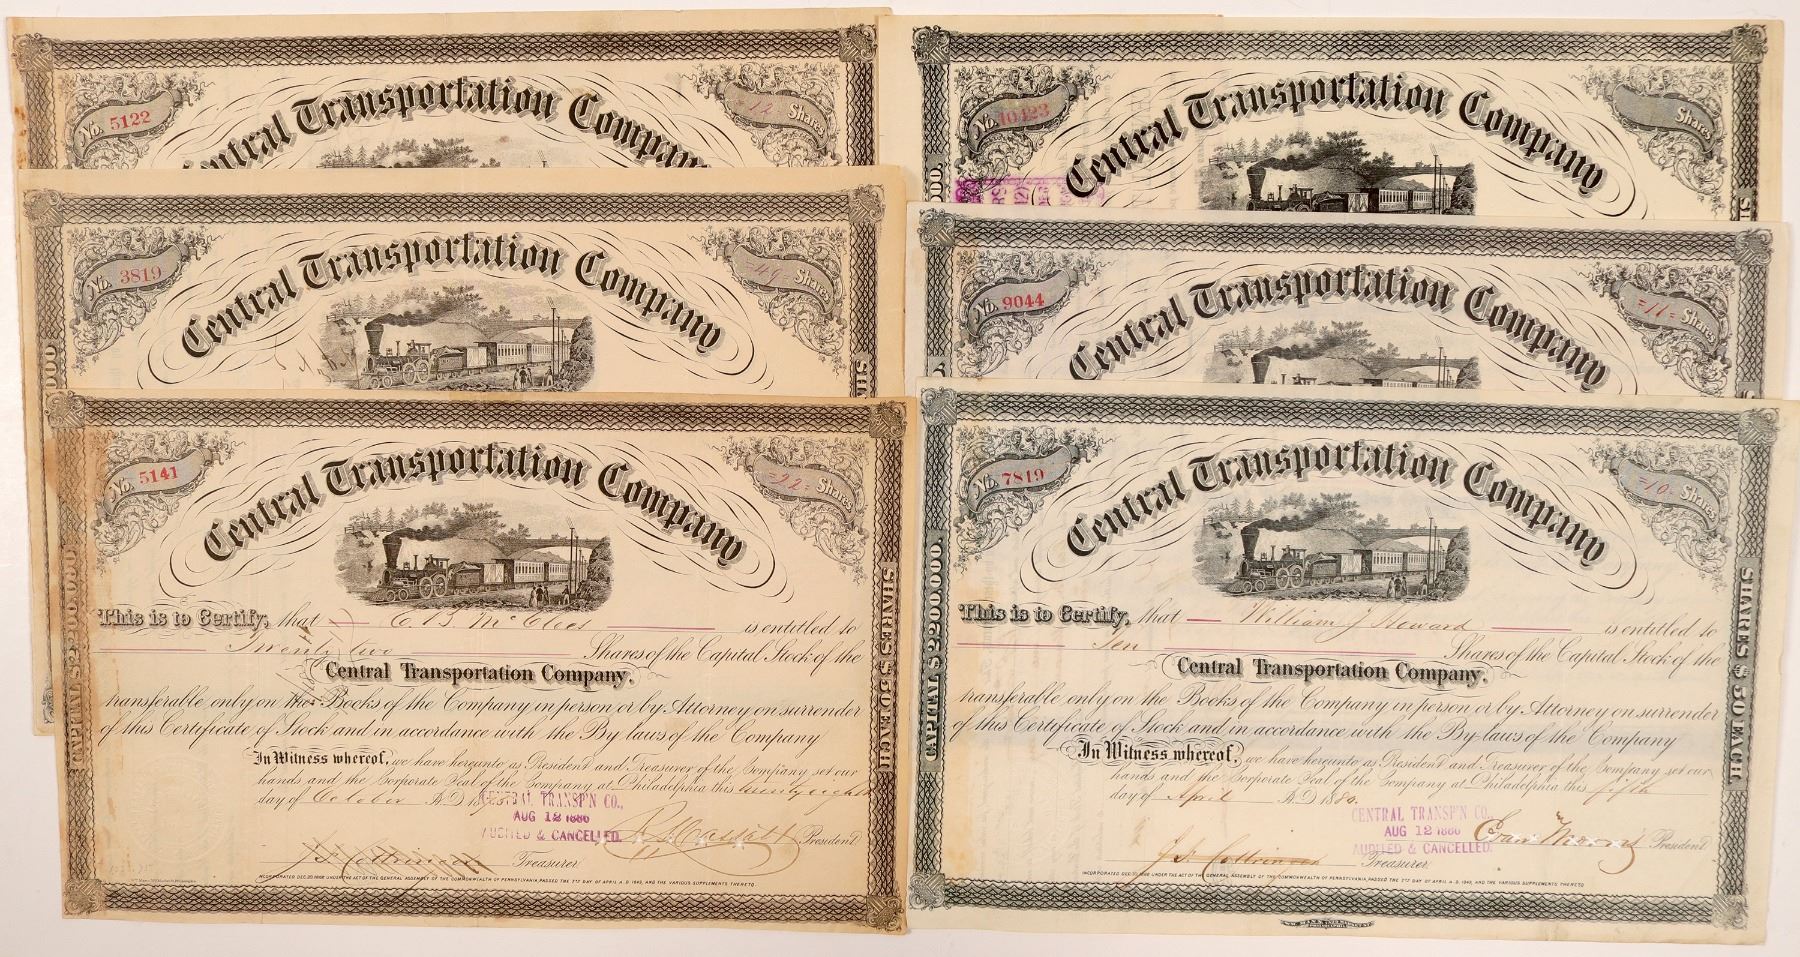 No. 5122
12 Shares
Central Transportation Company
No. 3819
=49= Shares
Central Transportation Company
000
SH
No. 5141
=22= Shares
Central Transportation Company
This is to Certify, that C. B. McClees is entitled to
Twenty two Shares of the Capital Stock of the
Central Transportation Company,
transferable only on the Books of the Company in person or by Attorney on surrender
of this Certificate of Stock and in accordance with the By-laws of the Company
In Witness whereof, we have hereunto as President and Treasurer of the Company set our
hands and the Corporate Seal of the Company at Philadelphia this twenty eighth
day of October A.D. 18
CENTRAL TRANSP'N CO.,
AUG 12 1886
AUDITED & CANCELLED.
President
J. F. Cottringer Treasurer
INCORPORATED DEC. 30, 1862 UNDER THE ACT OF THE GENERAL ASSEMBLY OF THE COMMONWEALTH OF PENNSYLVANIA, PASSED THE 7TH DAY OF APRIL A. D. 1849, AND THE VARIOUS SUPPLEMENTS THERETO.
CAPITAL $2200.000.
SHARES $50 EACH
No. 10423
Shares
Central Transportation Company
000.
SH
No. 9044
=11= Shares
Central Transportation Company
No. 7819
=10= Shares
Central Transportation Company
This is to Certify, that William J Steward is entitled to
Ten Shares of the Capital Stock of the
Central Transportation Company,
transferable only on the Books of the Company in person or by Attorney on surrender
of this Certificate of Stock and in accordance with the By-laws of the Company
In Witness whereof, we have hereunto as President and Treasurer of the Company set our
hands and the Corporate Seal of the Company at Philadelphia this fifth
day of April A.D. 1880.
CENTRAL TRANSP'N CO.,
AUG 12 1886
AUDITED & CANCELLED.
Evan Morris President
J. F. Cottringer Treasurer
INCORPORATED DEC. 30, 1862 UNDER THE ACT OF THE GENERAL ASSEMBLY OF THE COMMONWEALTH OF PENNSYLVANIA, PASSED THE 7TH DAY OF APRIL A. D. 1849, AND THE VARIOUS SUPPLEMENTS THERETO.
CAPITAL $2200.000.
SHARES $50 EACH.